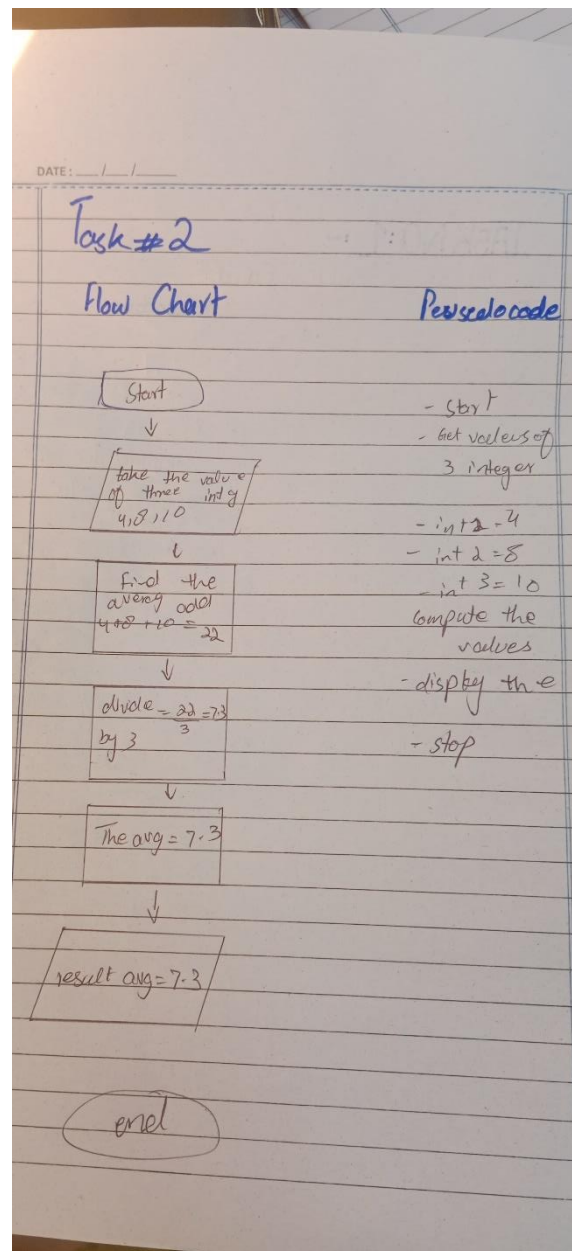 DATE: __/__/____
Task #2
Flow Chart
Pewseudocode
Start
take the value
of three intg
4,8,10
Find the
averag add
4+8+10 = 22
divide = 22/3 = 7.3
by 3
The avg = 7.3
result avg = 7.3
end
- start
- Get valeus of
3 integer
- int 2 = 4
- int 2 = 8
- int 3 = 10
compute the
values
- display the
- stop